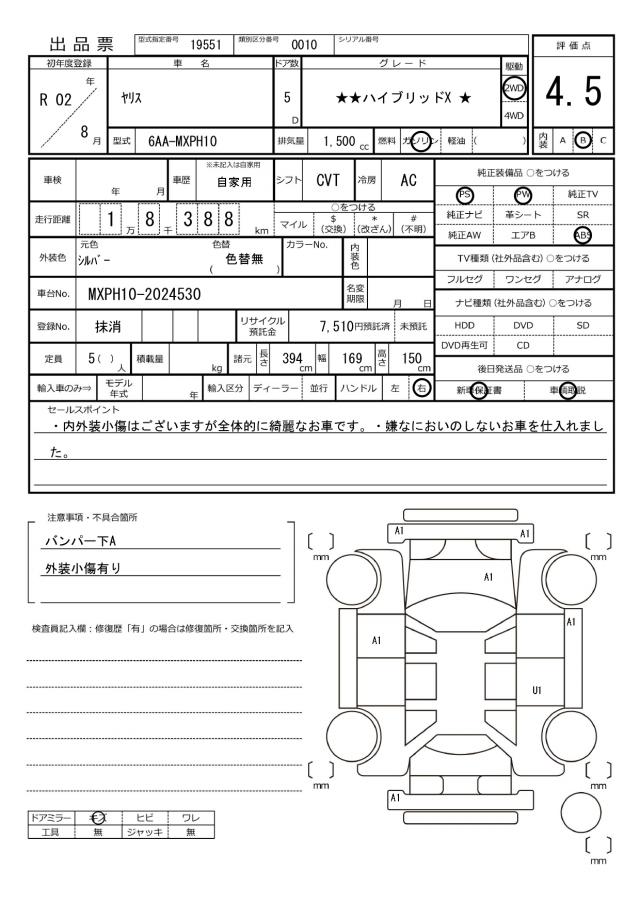 出品票 型式指定番号 19551 類別区分番号 0010 シリアル番号
評価点
4.5
内装 A B C
初年度登録 車名 ドア数 グレード 駆動
R 02 年 / 8 月 ヤリス 5 D ★★ハイブリッドX ★ 2WD 4WD
型式 6AA-MXPH10 排気量 1,500 cc 燃料 ガソリン 軽油 ( )
車検 年 月 車歴 ※未記入は自家用 自家用 シフト CVT 冷房 AC
走行距離 1 万 8 千 3 8 8 km ○をつける
マイル $(交換) *(改ざん) #(不明)
外装色 元色 シルバー 色替 ( 色替無 ) カラーNo. 内装色
車台No. MXPH10-2024530 名変期限 月 日
登録No. 抹消 リサイクル預託金 7,510円預託済 未預託
定員 5( ) 人 積載量 kg 諸元 長さ 394 cm 幅 169 cm 高さ 150 cm
輸入車のみ⇒ モデル年式 年 輸入区分 ディーラー 並行 ハンドル 左 右
純正装備品 ○をつける
PS PW 純正TV
純正ナビ 革シート SR
純正AW エアB ABS
TV種類 (社外品含む) ○をつける
フルセグ ワンセグ アナログ
ナビ種類 (社外品含む) ○をつける
HDD DVD SD
DVD再生可 CD
後日発送品 ○をつける
新車保証書 車輌取説
セールスポイント
・内外装小傷はございますが全体的に綺麗なお車です。・嫌なにおいのしないお車を仕入れまし
た。
注意事項・不具合箇所
バンパー下A
外装小傷有り
検査員記入欄：修復歴「有」の場合は修復箇所・交換箇所を記入
ドアミラー キズ ヒビ ワレ
工具 無 ジャッキ 無
A1 A1
[ ] mm [ ] mm
A1
A1
A1
U1
[ ] mm [ ] mm
A1
[ ] mm